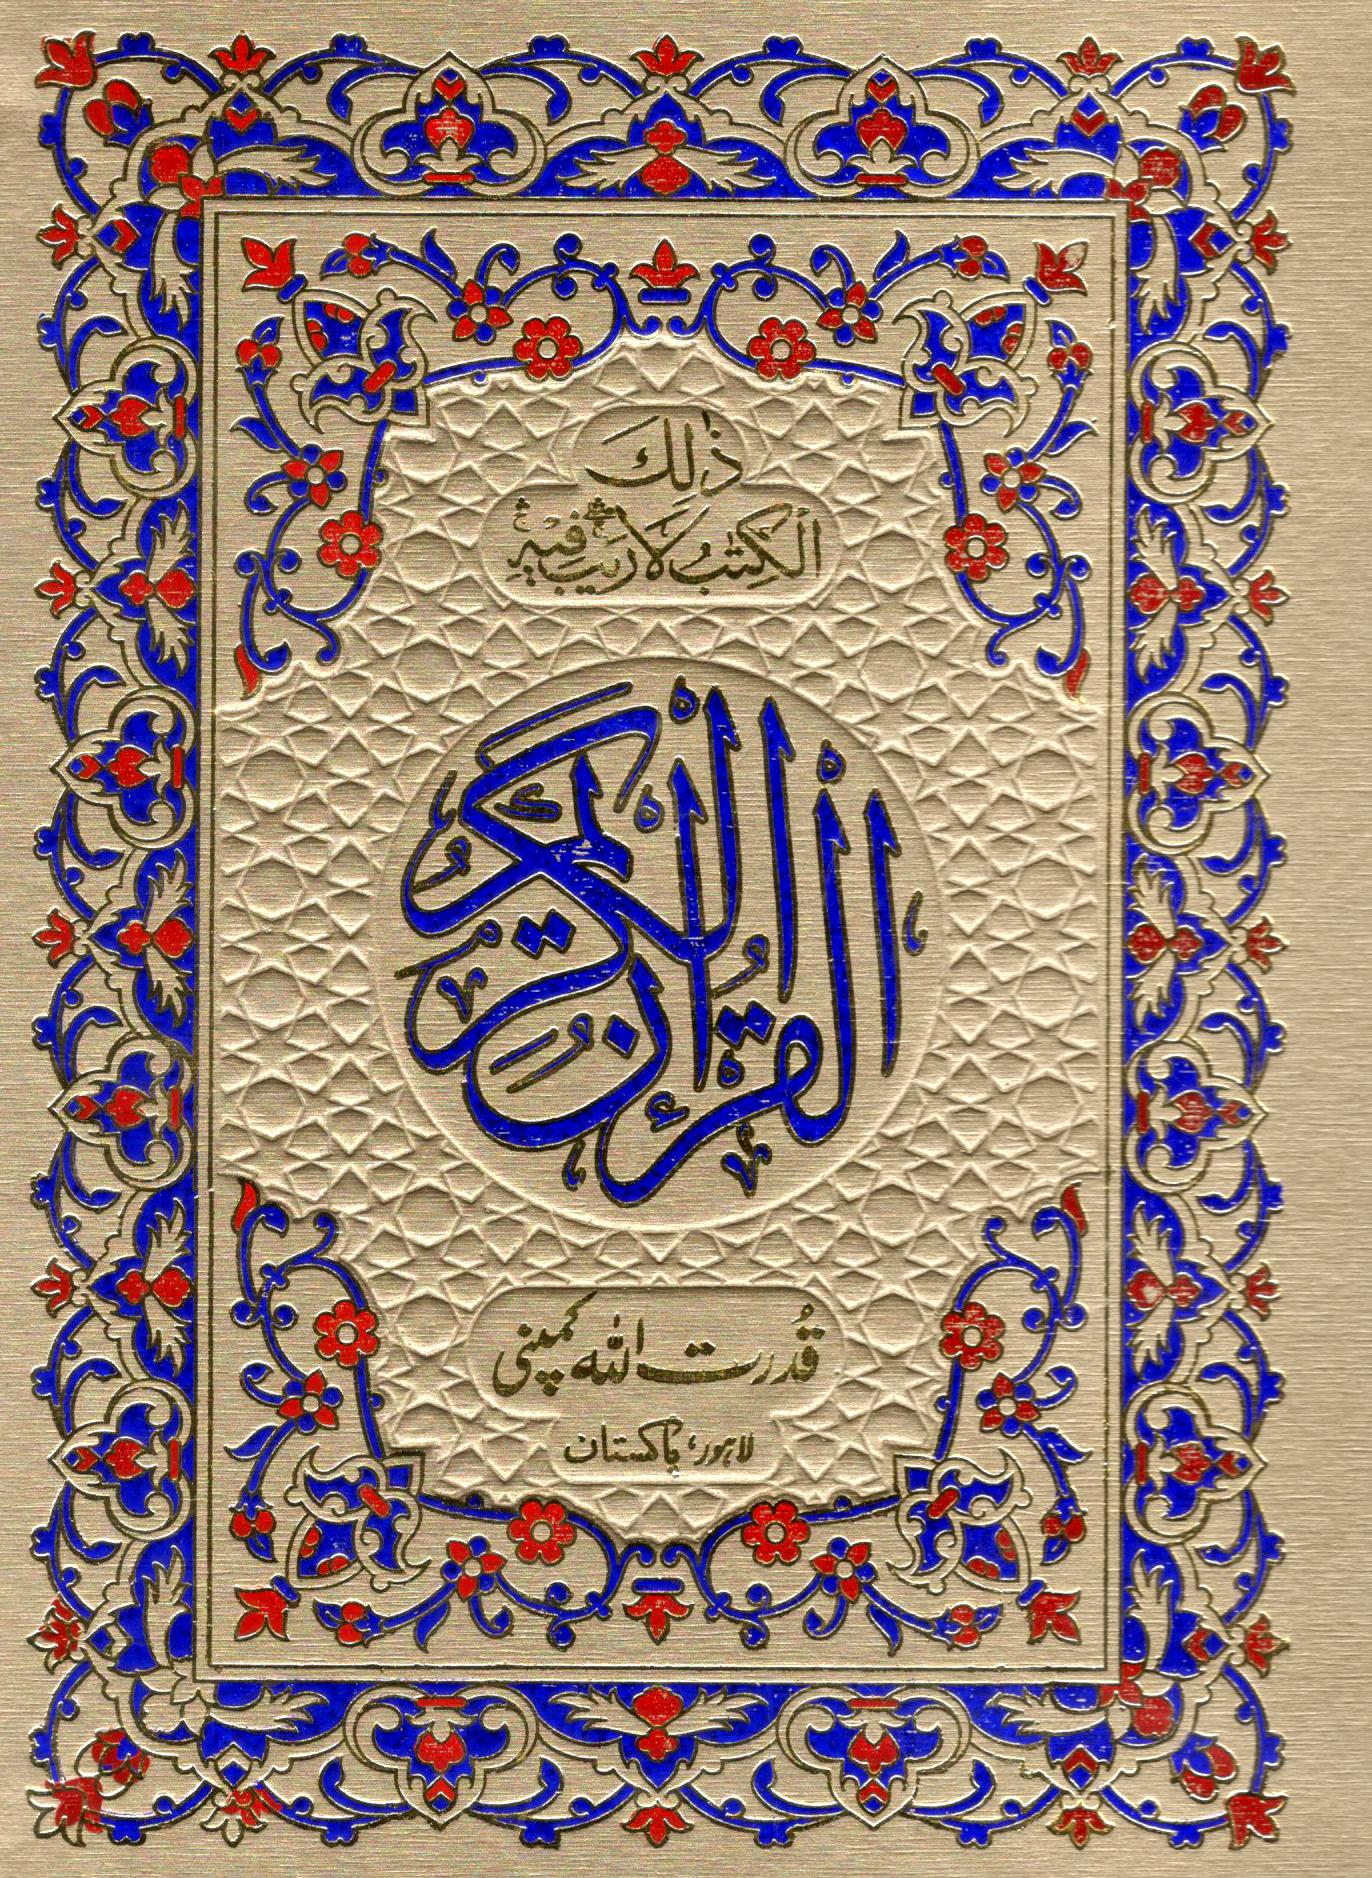 ذٰلِكَ
الْكِتٰبُ لَا رَيْبَ ۛ فِيْهِ ۛ
القرآن الكريم
قُدرت اللہ کمپنی
لاہور، پاکستان